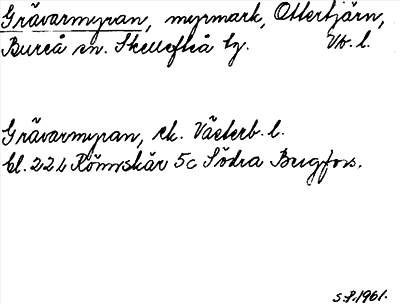 Grävarmyran, myrmark, Ottertjärn,
Bureå sn. Skellefteå tg. Vb. l.
Grävarmyran, ek. Västerb. l.
bl. 22 L Rönnskär 5c Södra Bergfors.
S.P. 1961.